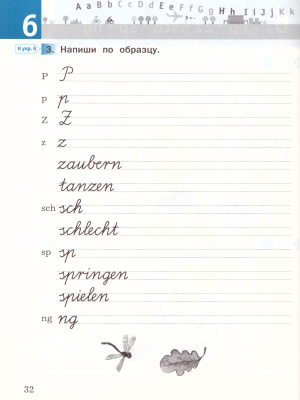 6
Aa Bb Cc Dd Ee Ff Gg Hh Ii Jj Kk
К упр. 6 3. Напиши по образцу.
P P
p p
Z Z
z z
zaubern
tanzen
sch sch
schlecht
sp sp
springen
spielen
ng ng
32